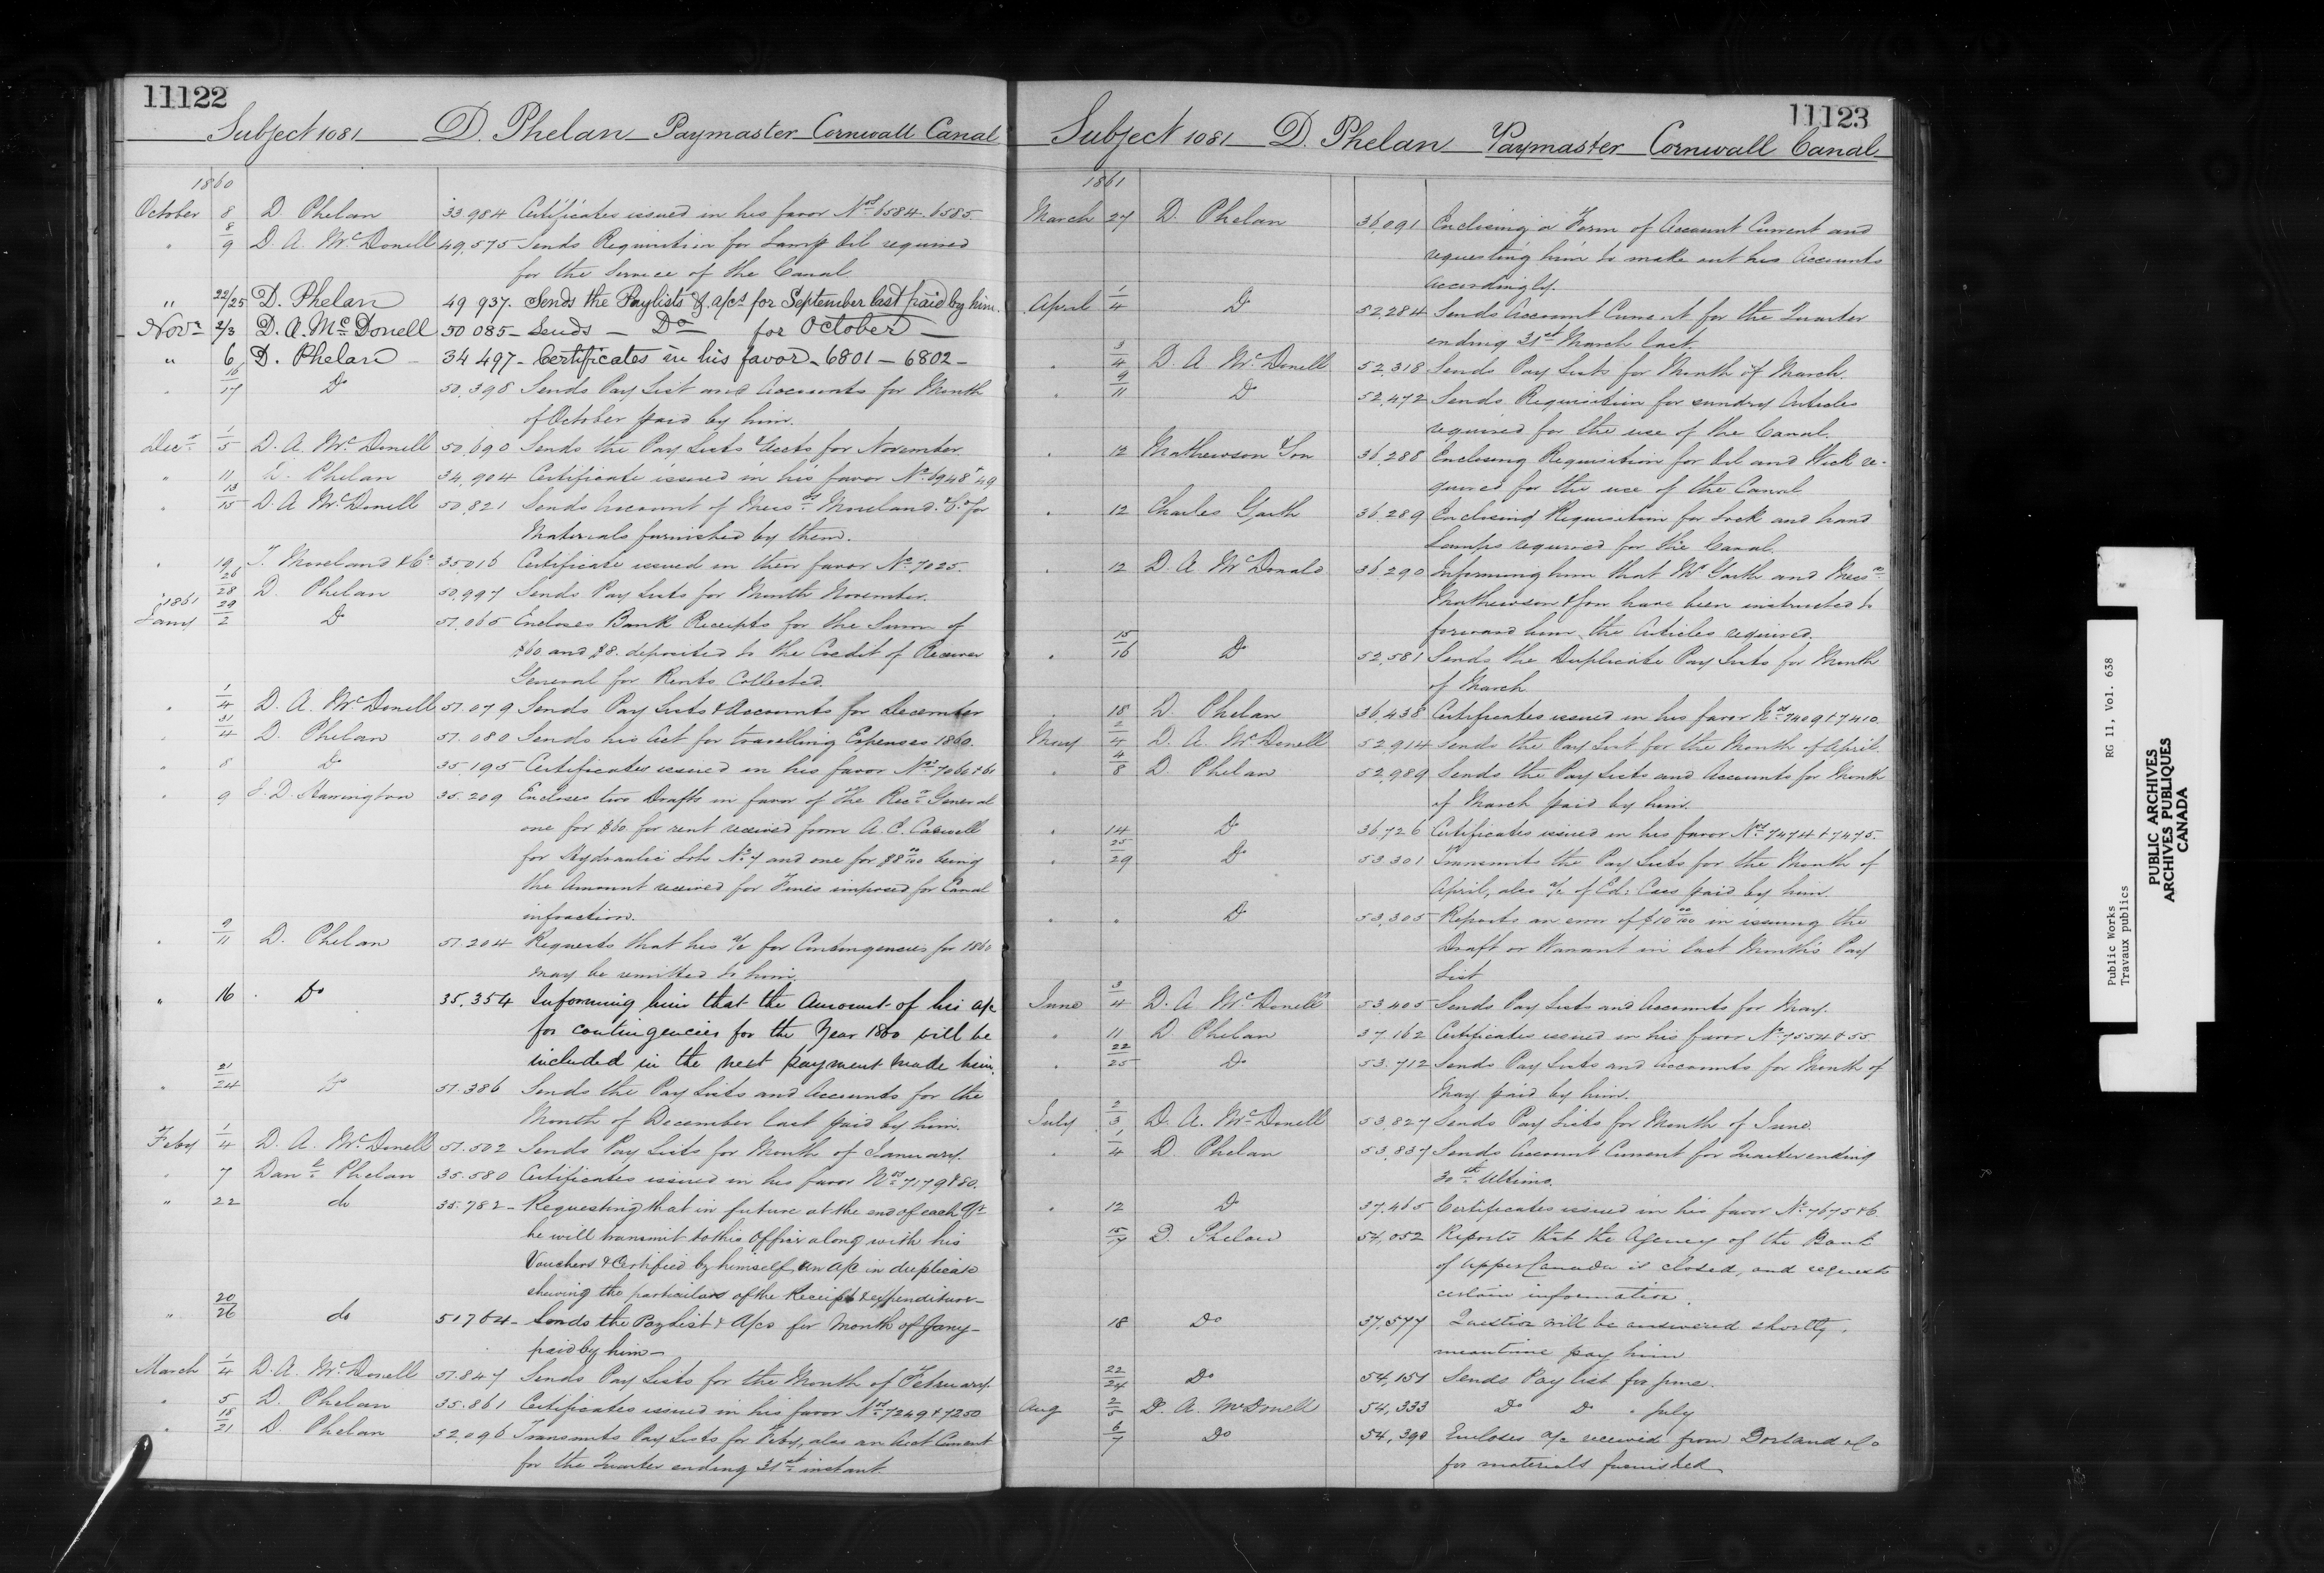 11122
Subject 1081 D. Phelan Paymaster Cornwall Canal
1860
October 8 D. Phelan 33.984 Certificates issued in his favor Nos 6584. 6585
" 8/9 D. A. McDonell 49,575 Sends Requisition for Lamp Oil required
for the Service of the Canal.
" 22/25 D. Phelan 49 937. Sends the Paylists & a/cs for September last paid by him.
Novr 2/3 D. A. McDonell 50 085 - Sends - Do - for October -
" 6 D. Phelan - 34 497 - Certificates in his favor - 6801 - 6802 -
" 16/17 Do 50,398 Sends Pay List and Accounts for Month
of October paid by him.
Decr 1/5 D. A. McDonell 50,690 Sends the Pay Lists & Accts for November
" 11 D. Phelan 34,904 Certificate issued in his favor No 6948 & 49
" 13/15 D. A McDonell 50,821 Sends Account of Messrs Moreland & Co for
Materials furnished by them.
" 19 T. Moreland & Co 35016 Certificate issued in their favor No 7025.
" 26/28 D. Phelan 50,997 Sends Pay Lists for Month November.
1861
Jany 29/2 Do 51,065 Encloses Bank Receipts for the Sum of
$60 and $8. deposited to the Credit of Receiver
General for Rents Collected.
" 1/4 D. A. McDonell 51.079 Sends Pay Lists & Accounts for December
" 31/4 D. Phelan 51.080 Sends his Act for travelling Expenses 1860.
" 8 Do 35,195 Certificates issued in his favor Nos 7060 & 61
" 9 J. D. Harrington 35.209 Encloses two Drafts in favor of the Recr General
one for $60 for rent received from A. C. Caswell
for Hydraulic Lots No 7 and one for $8 00/100 being
the Amount received for Fines imposed for Canal
infraction.
" 9/11 D. Phelan 51.204 Requests that his a/c for Contingencies for 1860
may be remitted to him.
" 16 Do 35.354 Informing him that the Amount of his a/c
for contingencies for the Year 1860 will be
included in the next payment made him.
" 21/24 Do 51.386 Sends the Pay Lists and Accounts for the
Month of December last paid by him.
Feby 1/4 D. A. McDonell 51.502 Sends Pay Lists for Month of January.
" 7 Danl Phelan 35.580 Certificates issued in his favor Nos 7179 & 80.
" 22 do 35.782 - Requesting that in future at the end of each Qr
he will transmit to this Office along with his
Vouchers & Certified by himself, an a/c in duplicate
shewing the particulars of the Receipt & expenditure -
" 20/26 do 51764 - Sends the Paylist & A/cs for Month of Jany -
paid by him -
March 1/4 D. A. McDonell 51.847 Sends Pay Lists for the Month of February.
" 5 D. Phelan 35.861 Certificates issued in his favor Nos 7249 & 7250
" 18/21 D. Phelan 52,096 Transmits Pay Lists for Feby, also an Acct Current
for the Quarter ending 31st instant.
11123
Subject 1081 D. Phelan Paymaster Cornwall Canal
1861
March 27 D. Phelan 36,091 Enclosing a Form of Account Current and
requesting him to make out his Accounts
Accordingly.
April 1/4 Do 52,284 Sends Account Current for the Quarter
ending 31st March last.
" 3/4 D. A McDonell 52,318 Sends Pay Lists for Month of March.
" 9/11 Do 52,472 Sends Requisition for sundry Articles
required for the use of the Canal.
" 12 Mathewson & Son 36,288 Enclosing Requisition for Oil and Wick re-
quired for the use of the Canal
" 12 Charles Garth 36,289 Enclosing Requisition for Lock and hand
Lamps required for the Canal.
" 12 D. A McDonald 36,290 Informing him that Mr Garth and Messrs
Mathewson & Son have been instructed to
forward him the Articles required.
" 15/16 Do 52,581 Sends the Duplicate Pay Lists for Month
of March
" 18 D. Phelan 36,438 Certificates issued in his favor Nos 7409 & 7410
May 2/4 D. A. McDonell 52,914 Sends the Pay List for the Month of April.
" 4/8 D Phelan 52,989 Sends the Pay Lists and Accounts for Month
of March paid by him.
" 14 Do 36,726 Certificates issued in his favor Nos 7474 & 7475.
" 25/29 Do 53,301 Transmits the Pay Lists for the Month of
April, also a/c of Ed: Cass paid by him.
" " Do 53,305 Reports an error of $10 00/100 in issuing the
Draft or Warrant in last Month's Pay
List
June 3/4 D. A. McDonell 53,405 Sends Pay Lists and Accounts for May.
" 11 D Phelan 37 162 Certificates issued in his favor No 7554 & 55
" 22/25 Do 53,712 Sends Pay Lists and Accounts for Month of
May paid by him.
July 2/3 D. A. McDonell 53,827 Sends Pay Lists for Month of June.
" 1/4 D Phelan 53,837 Sends Account Current for Quarter ending
30th Ultimo.
" 12 Do 37,465 Certificates issued in his favor No 7675 & 6
15/17 D. Phelan 54,052 Reports that the Agency of the Bank
of Upper Canada is closed, and requests
certain information.
18 Do 37,577 Question will be answered shortly,
meantime pay him
22/24 Do 54,151 Sends Pay list for June.
Aug 2/5 D. A. McDonell 54,333 Do Do " July
6/7 Do 54,390 Encloses a/c received from Dorland & Co
for materials furnished
Public Works RG 11, Vol. 638
Travaux publics
PUBLIC ARCHIVES
ARCHIVES PUBLIQUES
CANADA